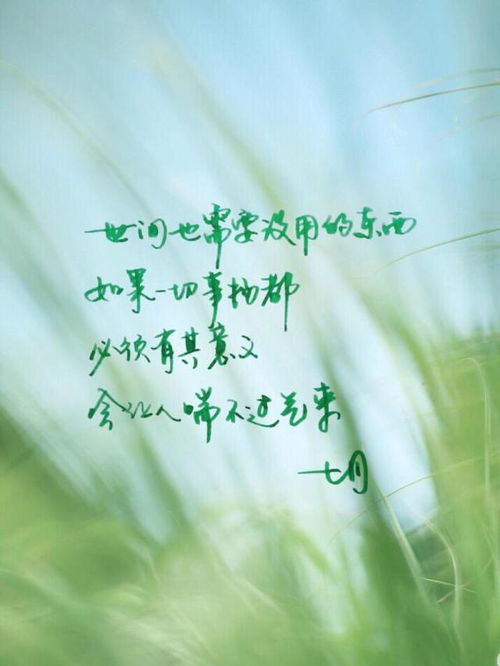 世间也需要没用的东西
如果一切事物都
必须有其意义
会让人喘不过气来
七月